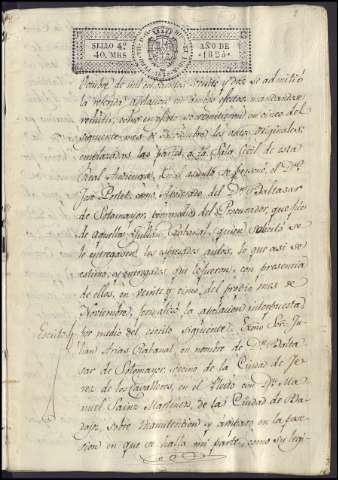 SELLO 4º
40. MRS
AÑO DE
1828
2
Octubre de mil ochocientos veinte y diez se admitió
la referida apelacion en ambos efectos, mandandose
remitir, como en efecto se remitieron en cinco del
siguiente mes de Noviembre los autos originales,
emplazadas las partes, a la Sala Civil de esta
Real Audiencia. En el asunto el
Jose como Apoderado del Dn. Baltasar
de Sotomayor, del Procurador, que fue
de aquella, Julian Rabanal, quien solicitó se
le entregasen los espresados autos, lo que asi se
estimo, y entregados que le fueron, con presencia
de ellos, en veinte y cinco del propio mes de
Noviembre, formalizó la apelacion interpuesta
Escrito por medio del escrito siguiente. Exmo. Sor. Ju-
lian Arias Rabanal, en nombre de Dn. Balta-
sar de Sotomayor, vecino de la Ciudad de Je-
rez de los Caballeros, en el Pleito con Dn. Ma-
nuel Sainz Martinez, de la Ciudad de Ba-
dajoz, sobre Manutencion y amparo en la pose-
sion en que se halla mi parte, como su legi-